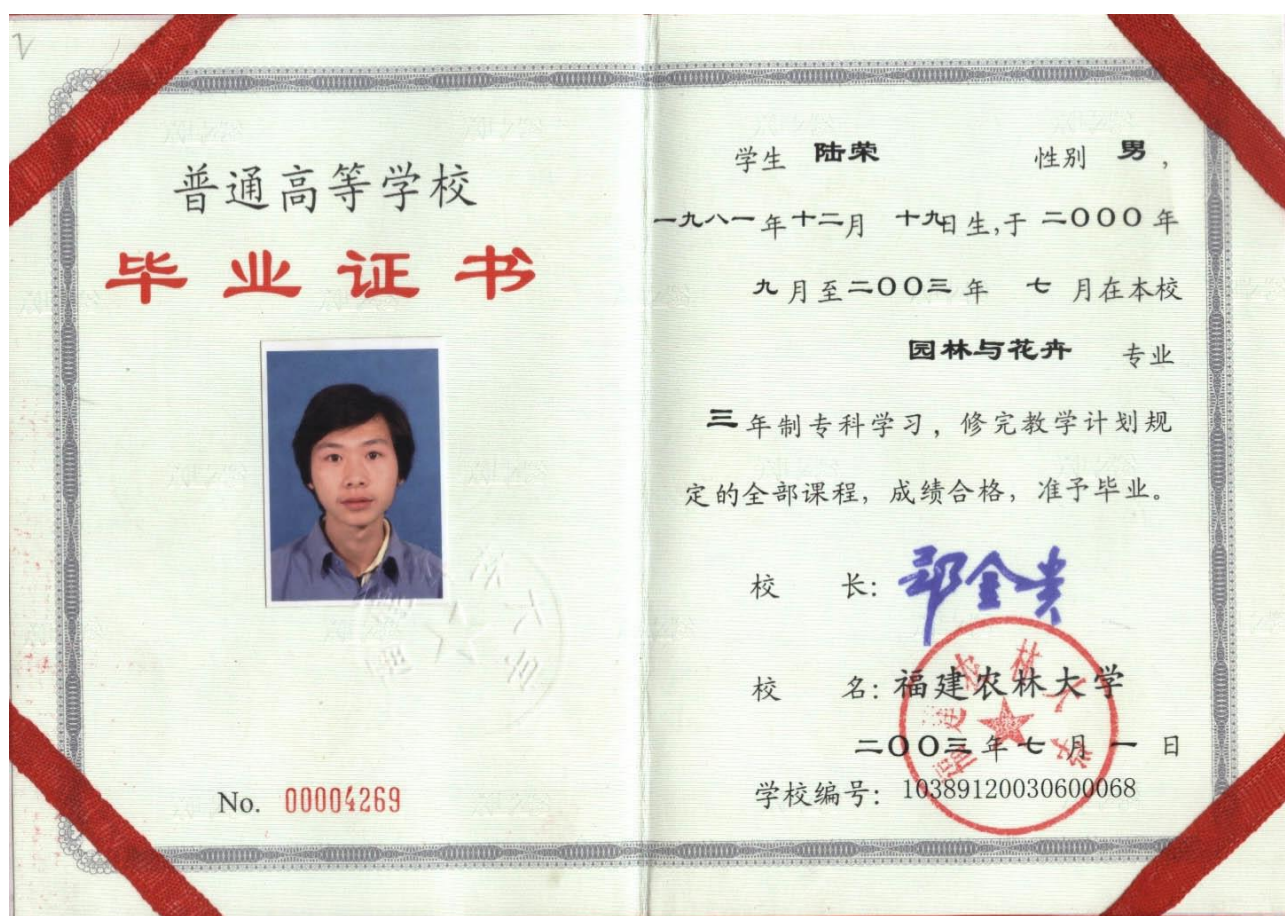 普通高等学校
毕业证书
No. 00004269
学生 陆荣 性别 男，
一九八一年十二月 十九日生,于 二000 年
九月至二00三年 七 月在本校
园林与花卉 专业
三年制专科学习，修完教学计划规
定的全部课程，成绩合格，准予毕业。
校 长：郑金贵
校 名：福建农林大学
二00三年七月一日
学校编号：10389120030600068
福建农林大学